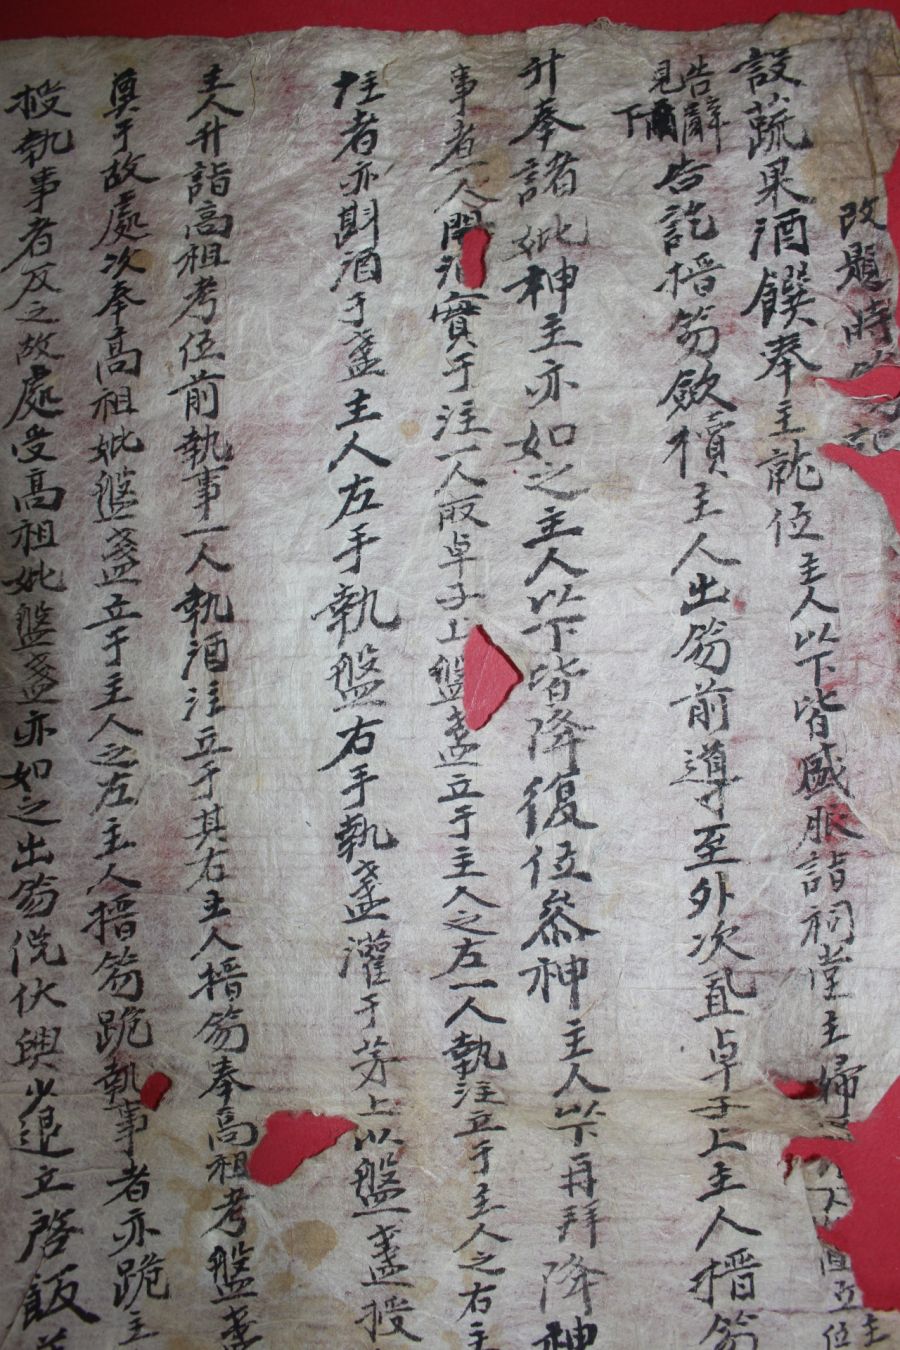 改題時
設蔬果酒饌奉主就位主人以下皆盛服詣祠堂主婦
告辭見下告訖搢笏斂櫝主人出笏前導至外次置卓子上主人搢笏
升奉諸妣神主亦如之主人以下皆降復位叅神主人以下再拜降神
事者一人開酒實于注一人取卓子上盤盞立于主人之左一人執注立于主人之右主
注者亦斟酒于盞主人左手執盤右手執盞灌于茅上以盤盞授
主人升詣高祖考位前執事一人執酒注立于其右主人搢笏奉高祖考盤盞
奠于故處次奉高祖妣盤盞立于主人之左主人搢笏跪執事者亦跪主
授執事者反之故處受高祖妣盤盞亦如之出笏俛伏興少退立啓飯